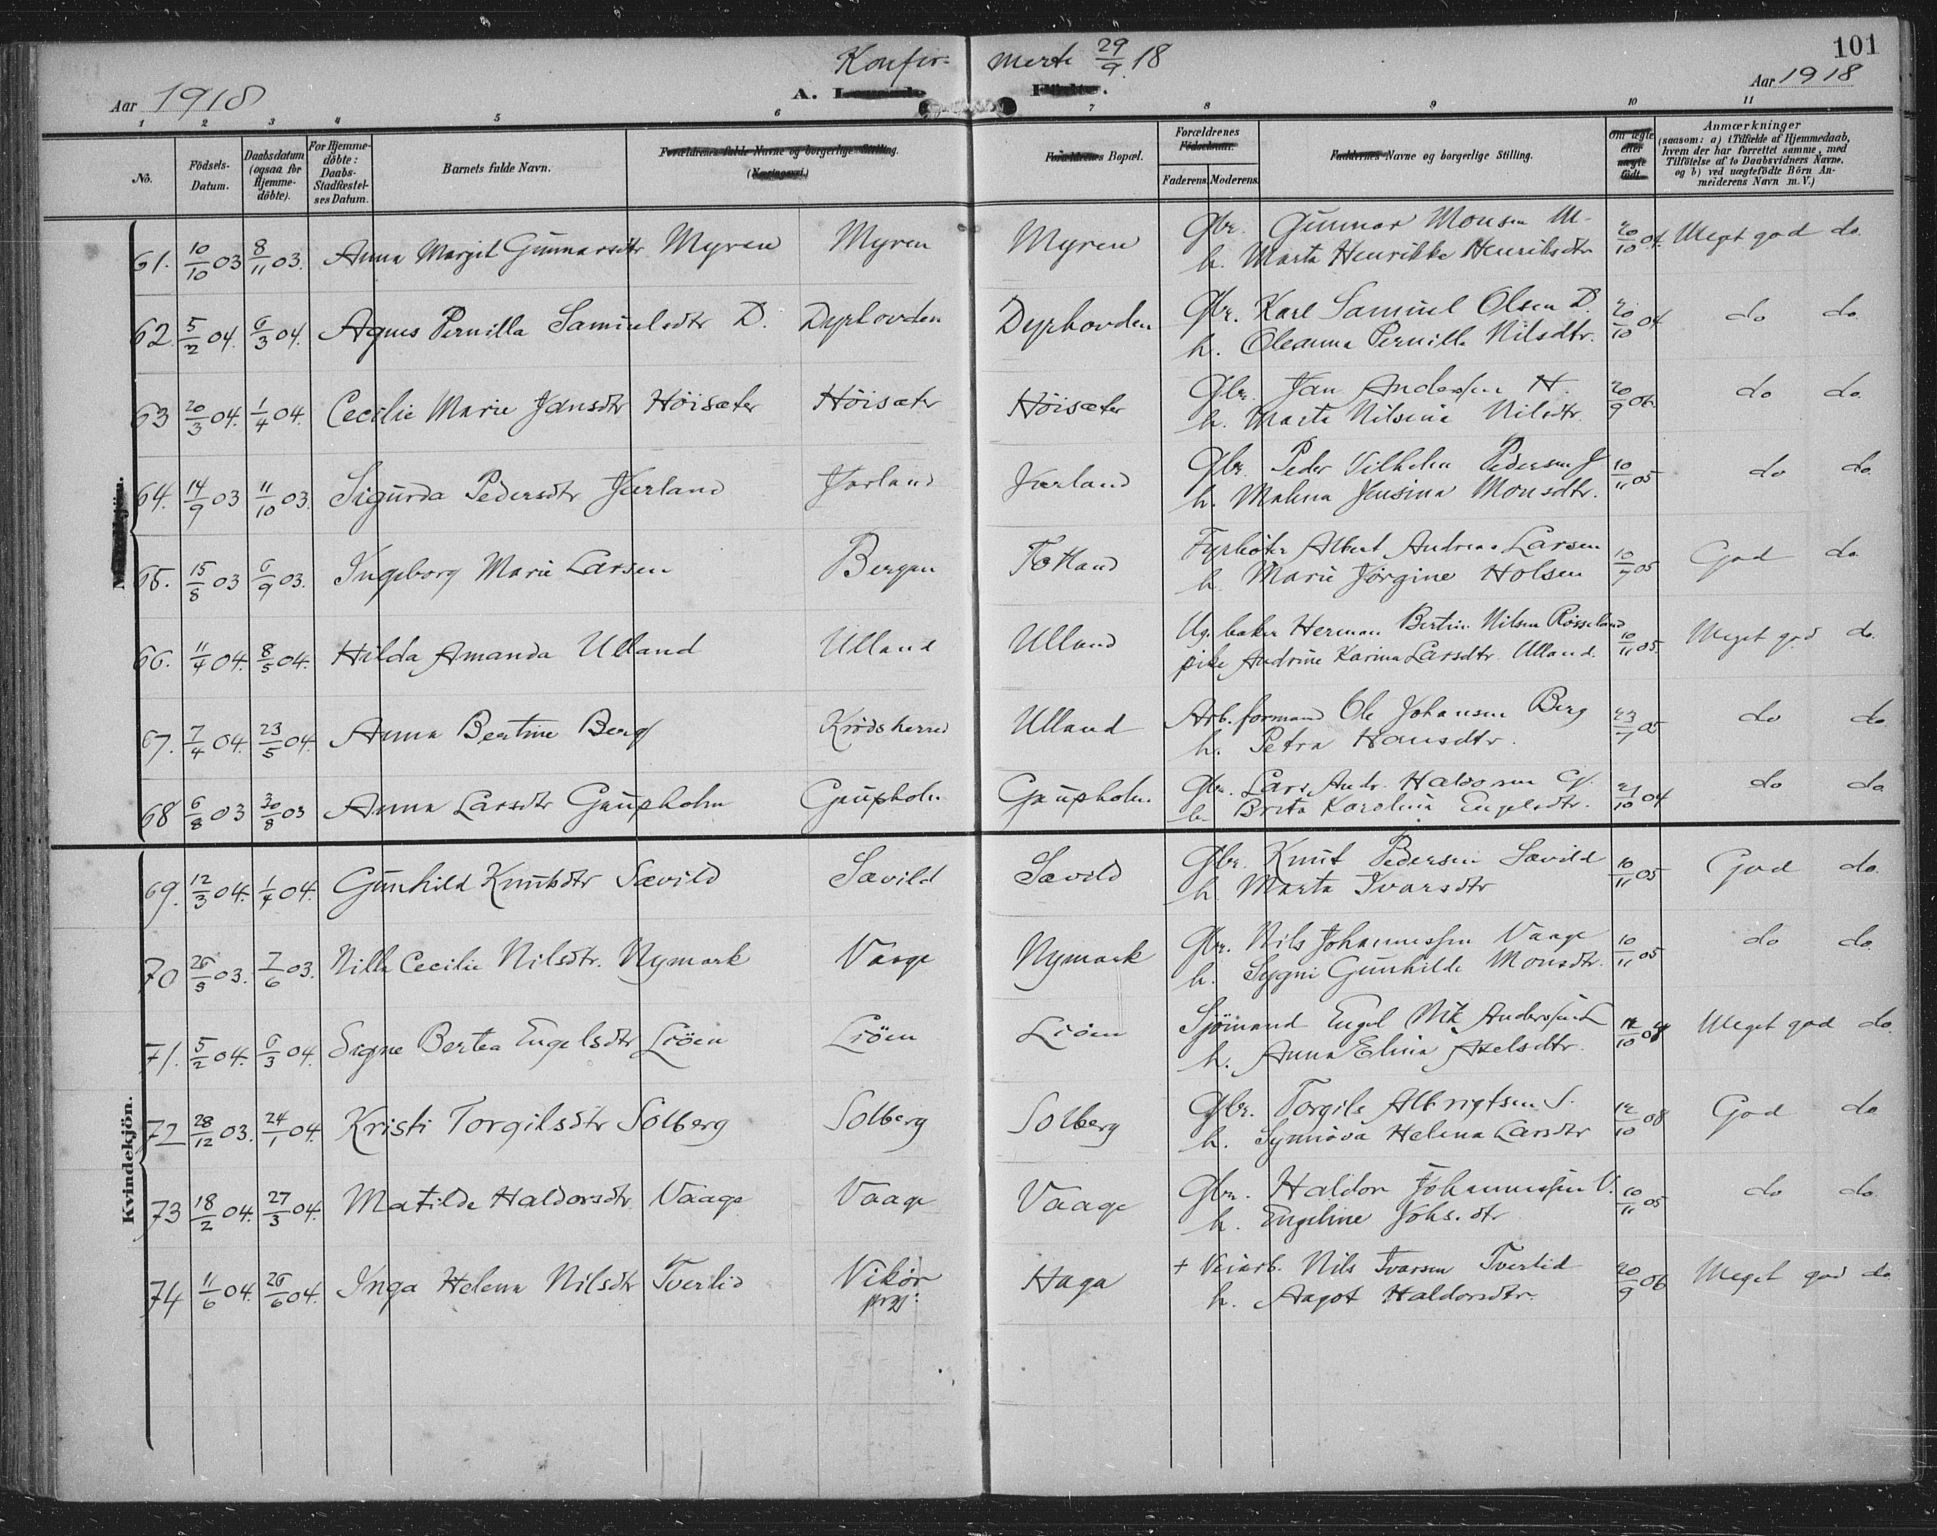 Konfir= merte 29/9 18
101
Aar 1918
A.
Aar 1918
1 2 3 4 5 6 7 8 9 10 11
No.
Födsels-Datum.
Daabsdatum (ogsaa for Hjemme-döbte).
For Hjemme-döbte: Daabs-Stadfæstel-ses Datum.
Barnets fulde Navn.
Forældrenes fulde Navne og borgerlige Stilling. (Næringsvei.)
Forældrenes Bopæl.
Forældrenes Födselsaar.
Faderens. Moderens.
Faddernes Navne og borgerlige Stilling.
Om ægte eller uægte födt.
Anmærkninger (saasom: a) i Tilfælde af Hjemmedaab, hvem der har forrettet samme, med Tilföielse af to Daabsvidners Navne, og b) ved uægtefödte Börn An-melderens Navn m. V.)
61. 10/10 03 8/11 03. Anna Margit Gunnarsdtr Myren Myren Myren Gbr. Gunnar Monsen M. 20/10 04. Meget god do.
h. Marta Henrikke Henriksdtr
62 5/2 04. 6/3 04. Agnes Pernilla Samuelsdtr D. Dyrhovden Dyrhovden Gbr. Karl Samuel Olsen D. 20/10 04 do do.
h. Oleanna Pernilla Nilsdtr.
63 20/3 04. 1/4 04. Cecilie Marie Jansdtr Höisæter Höisæter Höisæter Gbr. Jan Andersen H. 20/9 06. do do.
h. Marta Nilsina Nilsdtr.
64. 14/9 03 11/10 03. Sigurda Pedersdtr Jarland Jarland Jarland Gbr. Peder Vilhelm Pedersen J 10/11 05 do do.
h. Malena Jensina Monsdtr.
65. 15/8 03 6/9 03. Ingeborg Marie Larsen Bergen Totland Fyrböter Albert Andreas Larsen 10/7 05 God do.
h. Marie Jörgine Holsen
66. 11/4 04. 8/5 04. Hilda Amanda Ulland Ulland Ulland Ug. baker Herman Bertin Nilsen Rösseland 10/11 05. Meget god do.
pike Andrine Karina Larsdtr. Ulland.
67. 7/4 04. 23/5 04. Anna Bertine Berg Krödsherred Ulland Arb. formand Ole Johansen Berg 23/7 05 do do
h. Petra Hansdtr.
68 6/8 03 30/8 03 Anna Larsdtr Gaupholm Gaupholm Gaupholm. Gbr. Lars Andr. Haldorsen G. 21/10 04 do do
h. Brita Karolina Engelsdtr.
69. 12/3 04. 1/4 04. Gunhild Knutsdtr Sævild Sævild Sævild Gbr. Knut Pedersen Sævild 10/11 05 God do.
h. Marta Ivarsdtr
70 26/5 03. 7/6 03. Nilla Cecilie Nilsdtr. Nymark Vaage Nymark Gbr. Nils Johannessen Vaage 10/11 05 do do.
h. Sygni Gunhilde Monsdtr.
71. 5/2 04. 6/3 04. Signe Bertea Engelsdtr Liöen Liöen Liöen Sjömand Engel Mk Andersen L 12/10 08 Meget god do.
h. Anna Elina Axelsdtr.
72 28/12 03. 24/1 04. Kristi Torgilsdtr Solberg Solberg Solberg Gbr. Torgils Albrigtsen S. 12/10 08 God do
h. Synnöva Helena Larsdtr
73 18/2 04. 27/3 04. Matilde Haldorsdtr. Vaage Vaage Vaage Gbr. Haldor Johannessen V. 10/11 05 do do.
h. Engeline Johs.dtr
74 11/6 04. 26/6 04. Inga Helena Nilsdtr Tvertid Vikör prgj: Haga + Veiarb. Nils Ivarsen Tvertid 20/9 06 Meget god do
h. Aagot Haldorsdtr.
Kvindekjön.